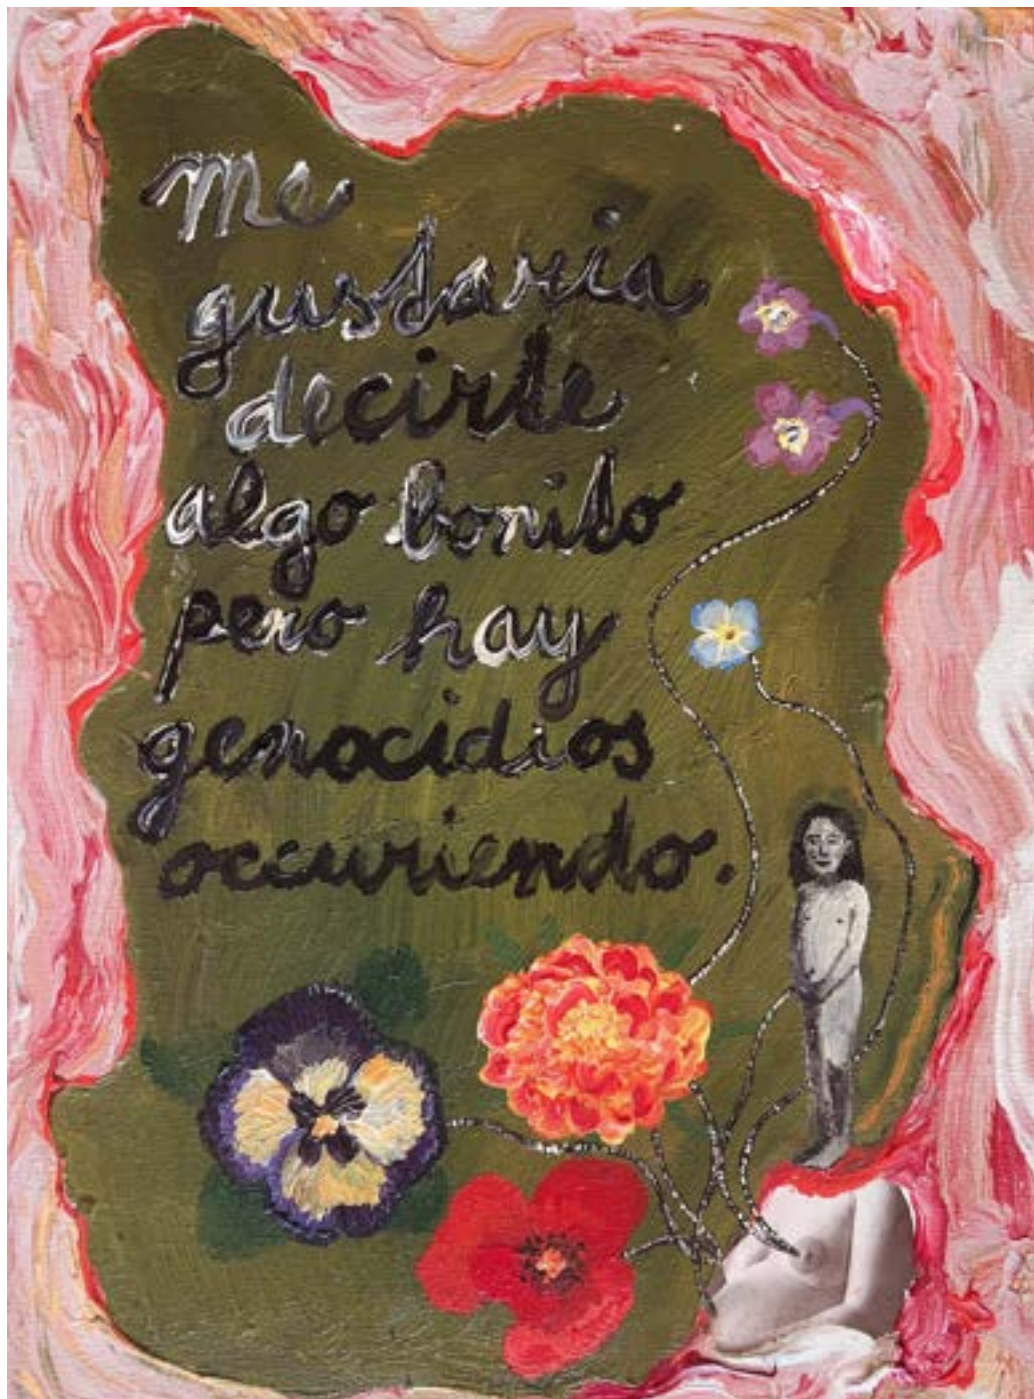 me
gustaria
decirte
algo bonito
pero hay
genocidios
occuriendo.